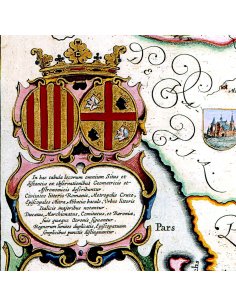 In hac tabula locorum omnium Situs et
distantia ex observationibus Geometricis et
Astronomicis describuntur
Civitates literis Romanis, Metropolis Cruce,
Episcopales Mitra, Abbatia baculo, Urbes literis
Italicis majoribus notantur
Ducatus, Marchionatus, Comitatus, et Baronia,
suis quaeque Coronis signantur,
Regnorum limites duplicatis, Episcopatuum
simplicibus punctis distinguuntur.
Pars